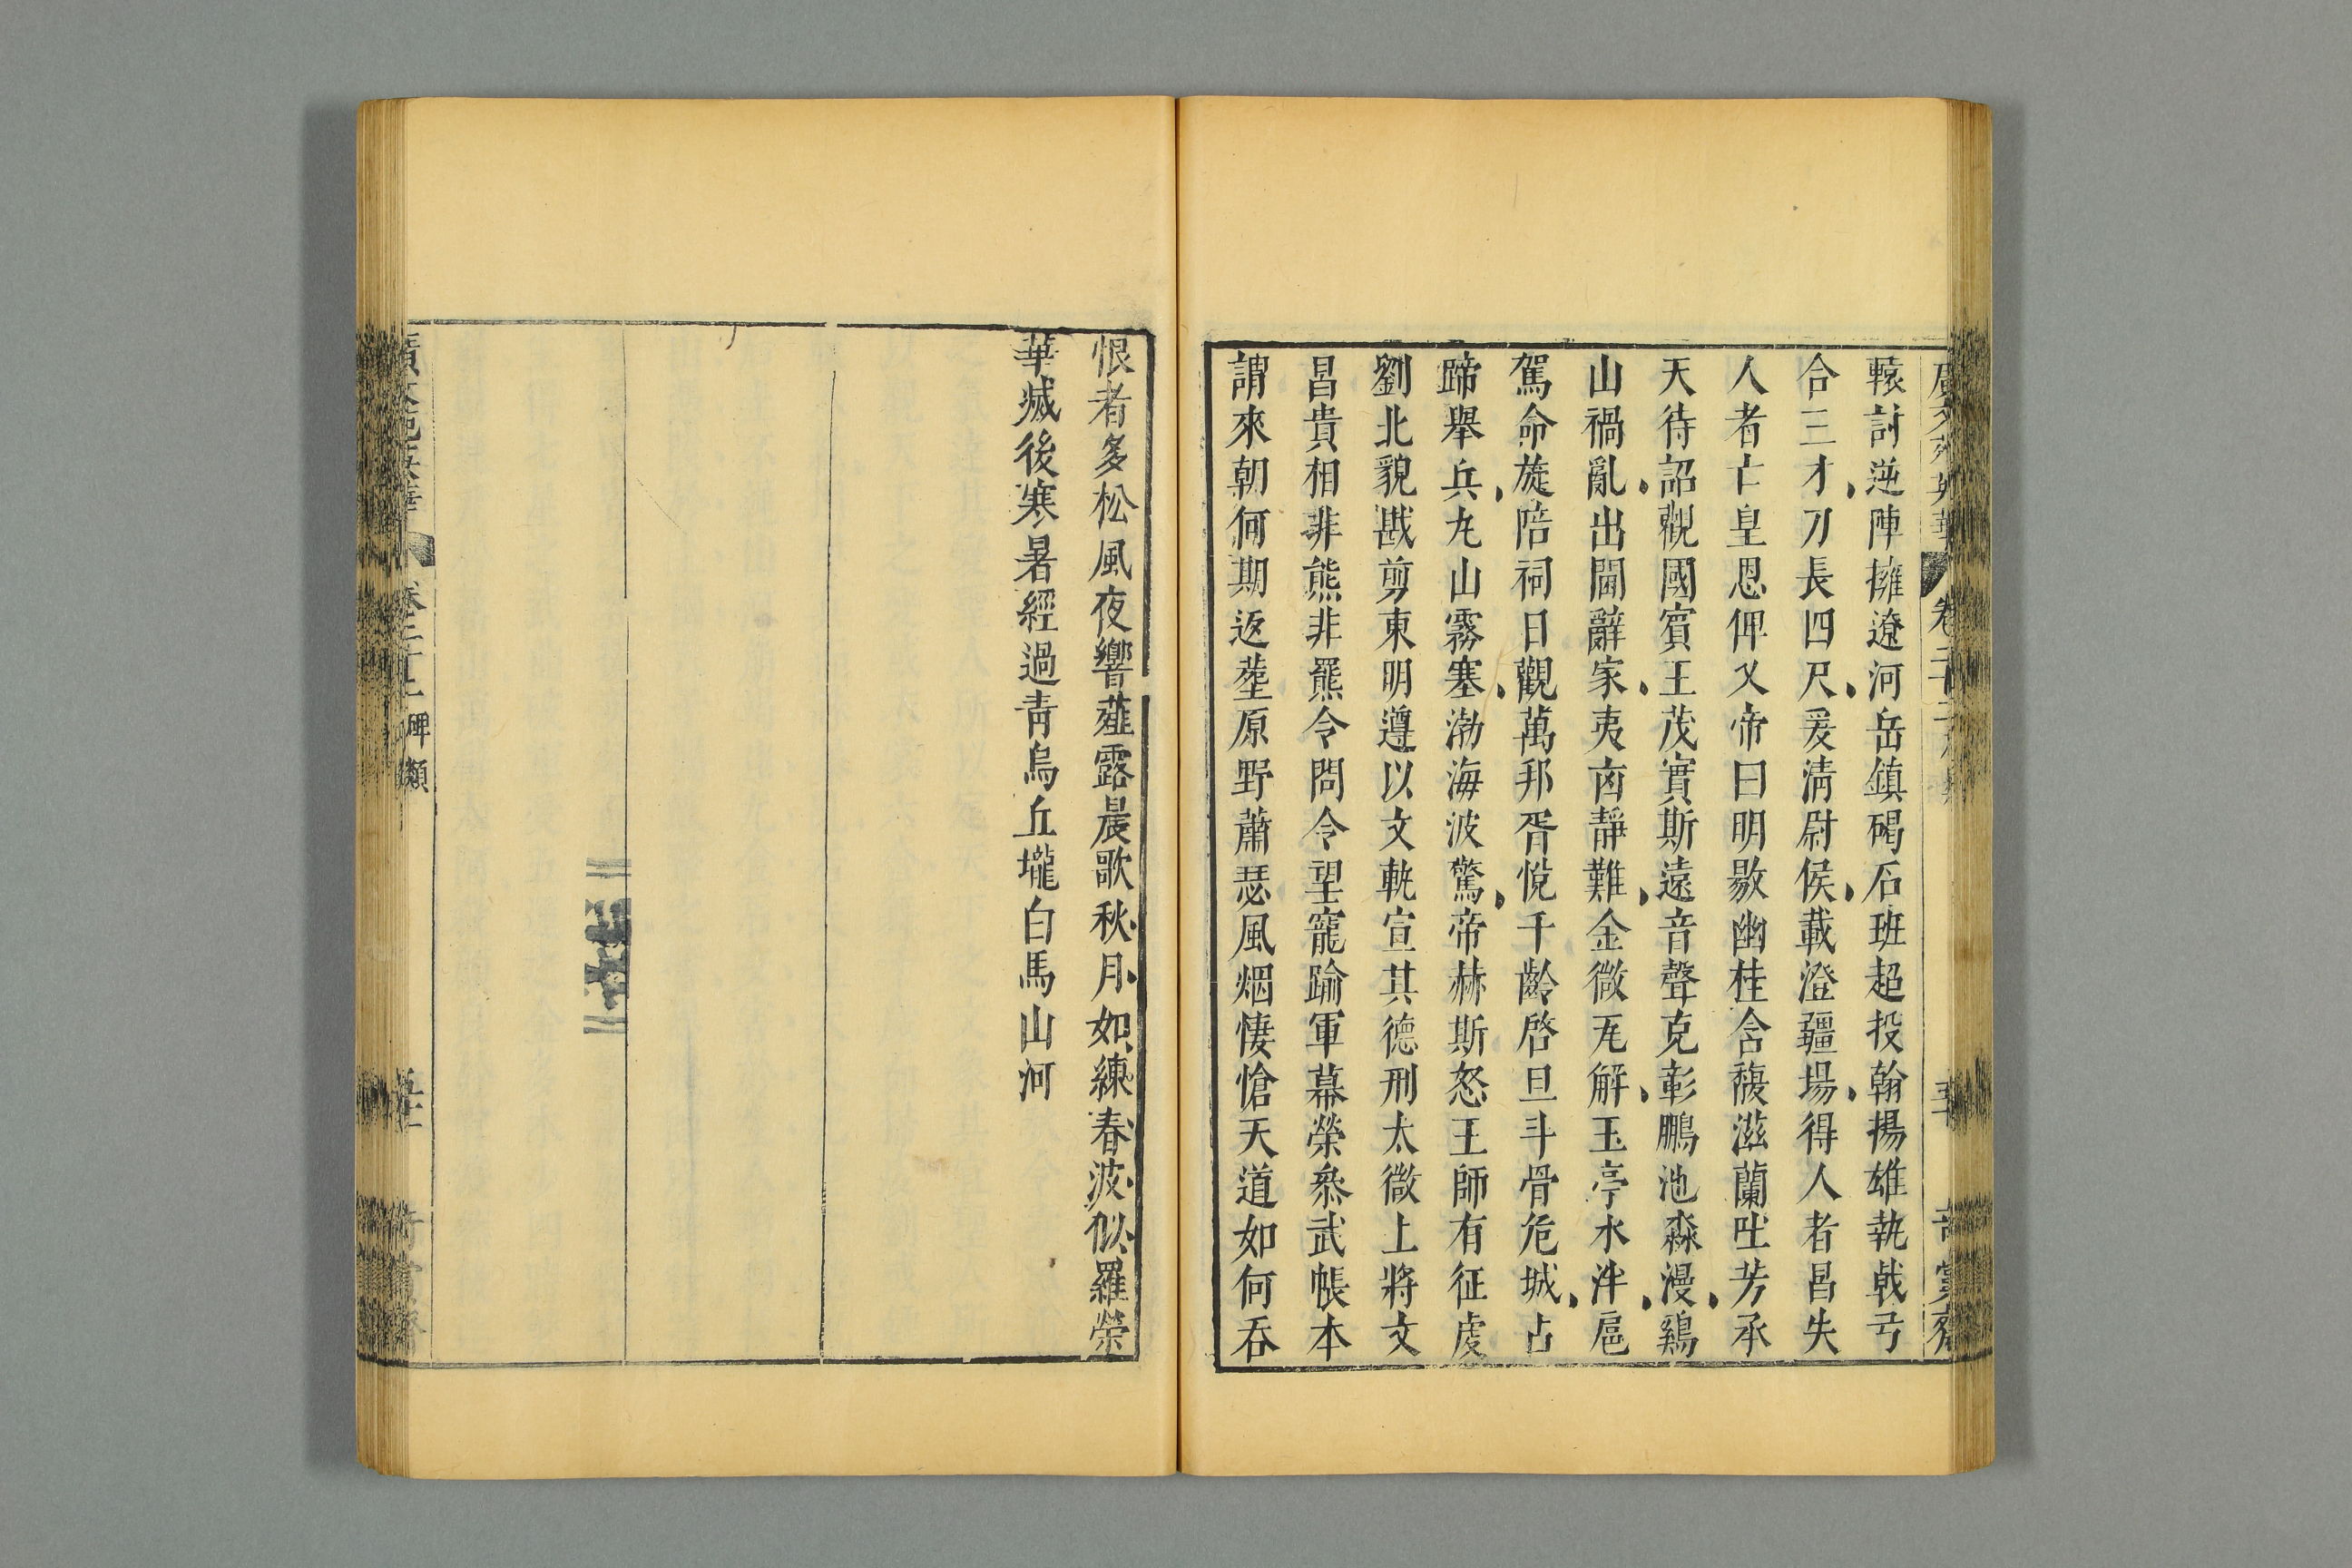 轅討逆陣擁遼河岳鎮碣石班超投翰揚雄執戟亏
合三才刀長四尺爰淸尉侯載澄疆場得人者昌失
人者亡皇恩俾乂帝曰明敭幽桂含馥滋蘭吐芳承
天待詔觀國賓王茂實斯遠音聲克彰鵬池淼漫鷄
山禍亂出閫辭家夷凶靜難金微瓦解玉亭水泮扈
駕命旋陪祠日觀萬邦胥悅千齡啓旦斗骨危城占
蹄舉兵九山霧塞渤海波驚帝赫斯怒王師有征虔
劉北貌戡剪東明遵以文軌宣其德刑太微上將文
昌貴相非熊非羆令問令望寵踰軍幕榮叅武帳本
謂來朝何期返塟原野蕭瑟風烟悽愴天道如何吞
恨者多松風夜響薤露晨歌秋月如練春波似羅榮
華滅後寒暑經過靑烏丘壠白馬山河
碑類